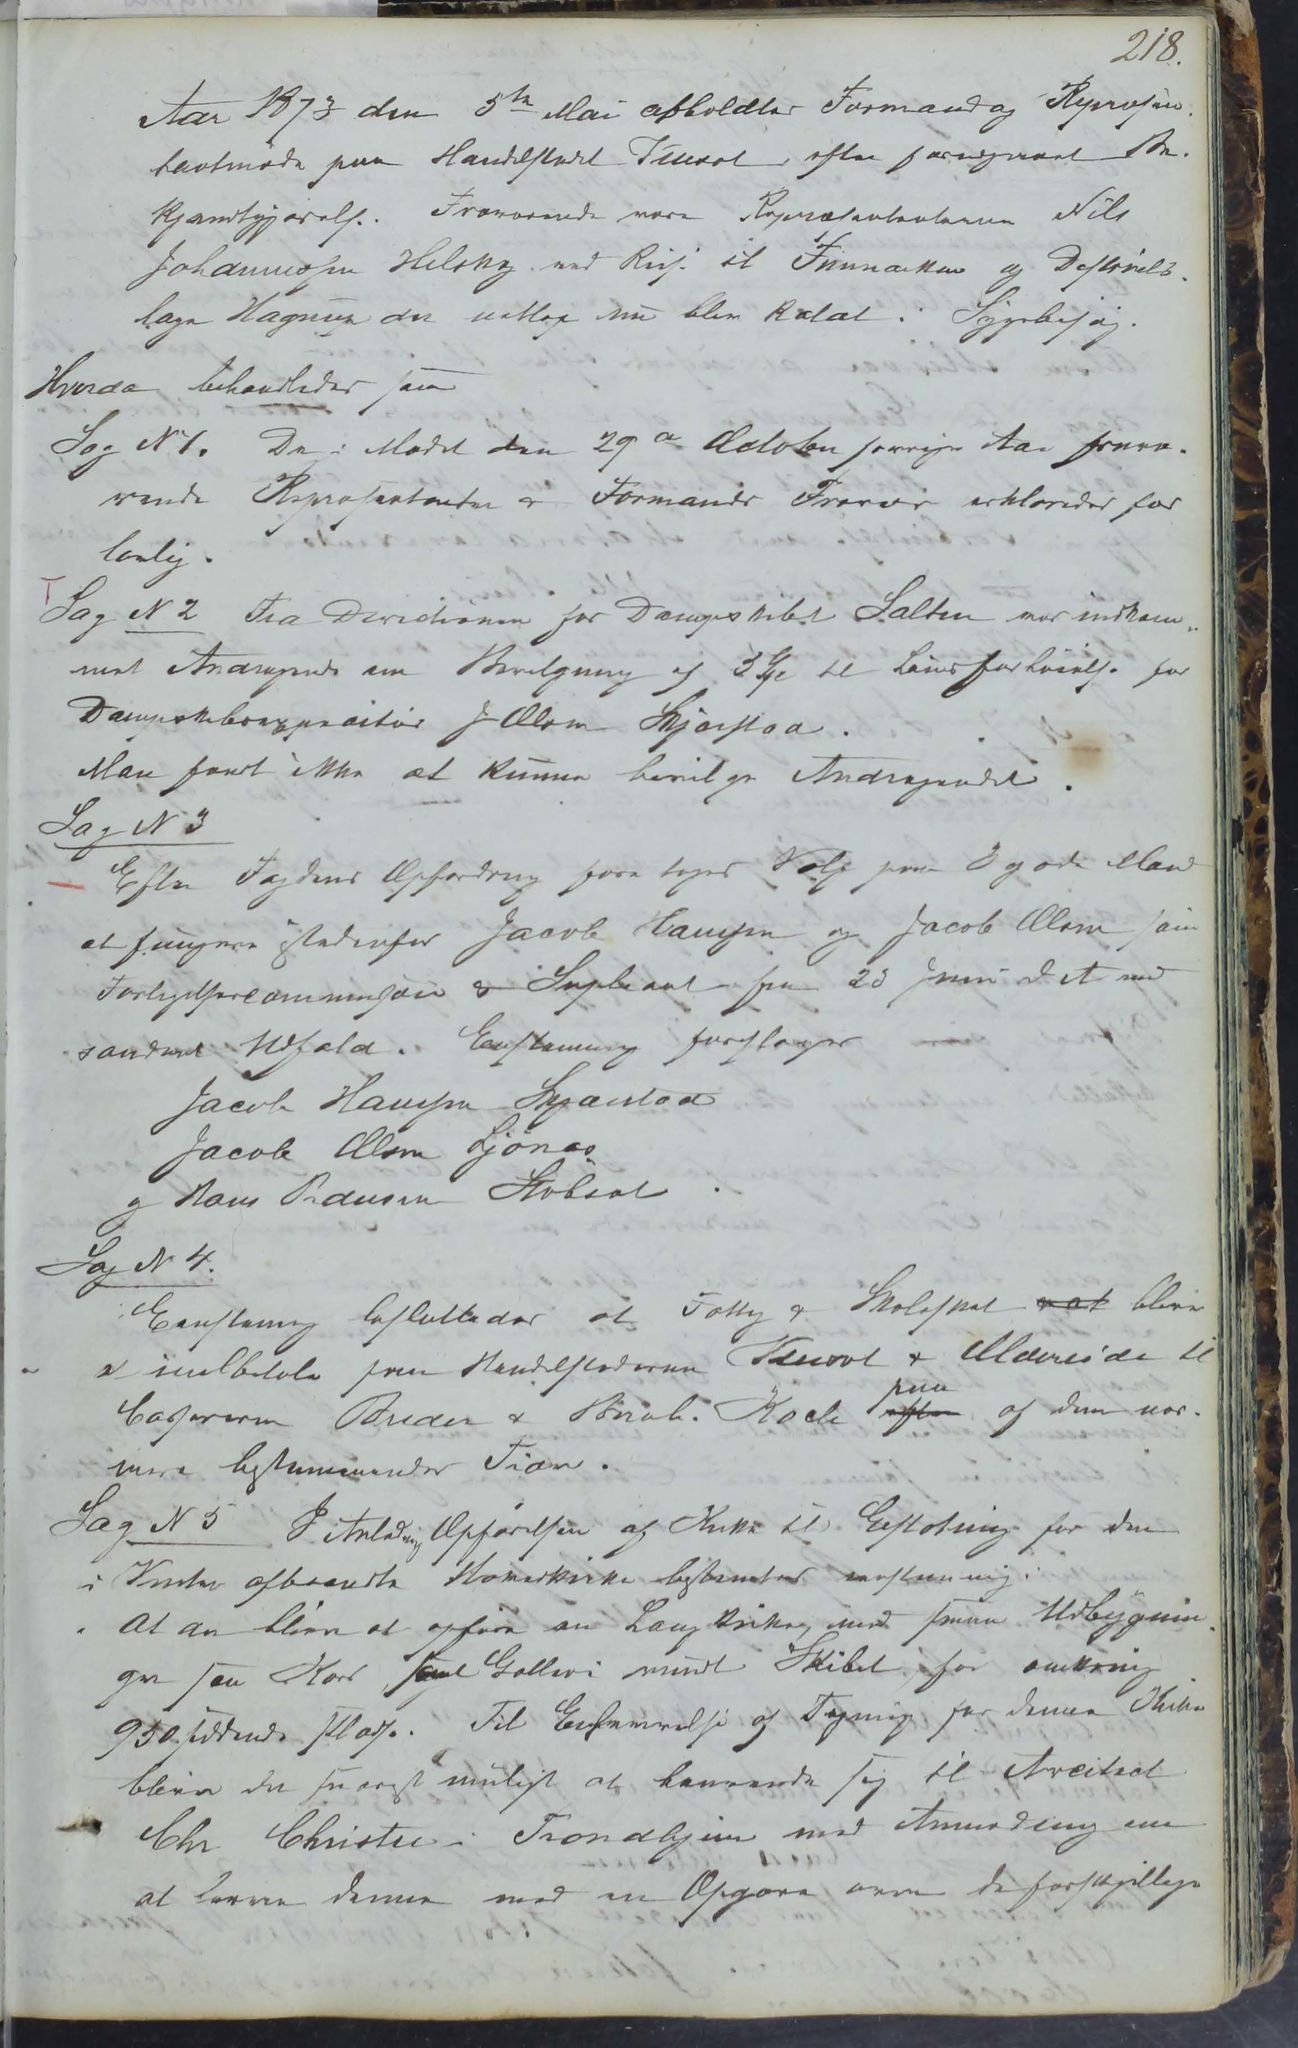 218.
Aar 1873 den 5te Mai afholdtes Formand og Repræsen-
tantmøde paa Handelsstedet Tuvsvl efter foregaaet Be-
kjendtgjørelse. Fraværende vare Repræsentanterne Nils
Johannesen Helskog ved Reise til Finmarken og Distrikts-
læge Hagrup der netop nu blev kaldt i Sygebesøg.
Hvorda behandledes som
Sag N 1. De i Mødet den 29de October forrige Aar fravæ-
rende Repræsentanter & Formænds Fravær erklæredes for
lovlig.
Sag N 2 Fra Directionen for Dampskibet Salten var indkom-
met Andragende om Bevilgning af 3 til Lønsforhøielse for
Dampskibsexpeditør J Olsen Skjærstad.
Man fandt ikke at kunne bevilge Andragendet.
Sag N 3
Efter Fogdens Opfordring foretoges Valg paa 3 gode Mænd
at fungere istedenfor Jacob Hansen og Jacob Olsen som
Forligelsescommissær & Supleant fra 23 Juni d A ved
sandres Udfald. Eenstemmig foresloges
Jacob Hansen Skjærstad
Jacob Olsen Ljønes
og Hans Pedersen Støbset.
Sag N 4.
Eenstemmig besluttedes at Fattig & Skoleskat at bliver
at indbetale paa Handelsstederne & til
Casserererne Breder & Koch efter paa af dem nær-
mere bestemmendes Tider.
Sag N 5 I Anledning Opførelsen af Kirke til Erstatning for den
i Vinter afbrændte Hovedkirke bestemtes eenstemmig:
at der bliver at opføre en Langkirke med smaa Udbygnin-
ger som Kors, samt Galleri rundt Skibet for omkring
950 siddende Pladse. Til Erhvervelse af Tegning for denne Kirke
bliver det snarest muligt at henvende sig til Arcitect
Chr Christie i Trondhjem med Anmodning om
at levere denne med en Opgave over de forskjellige